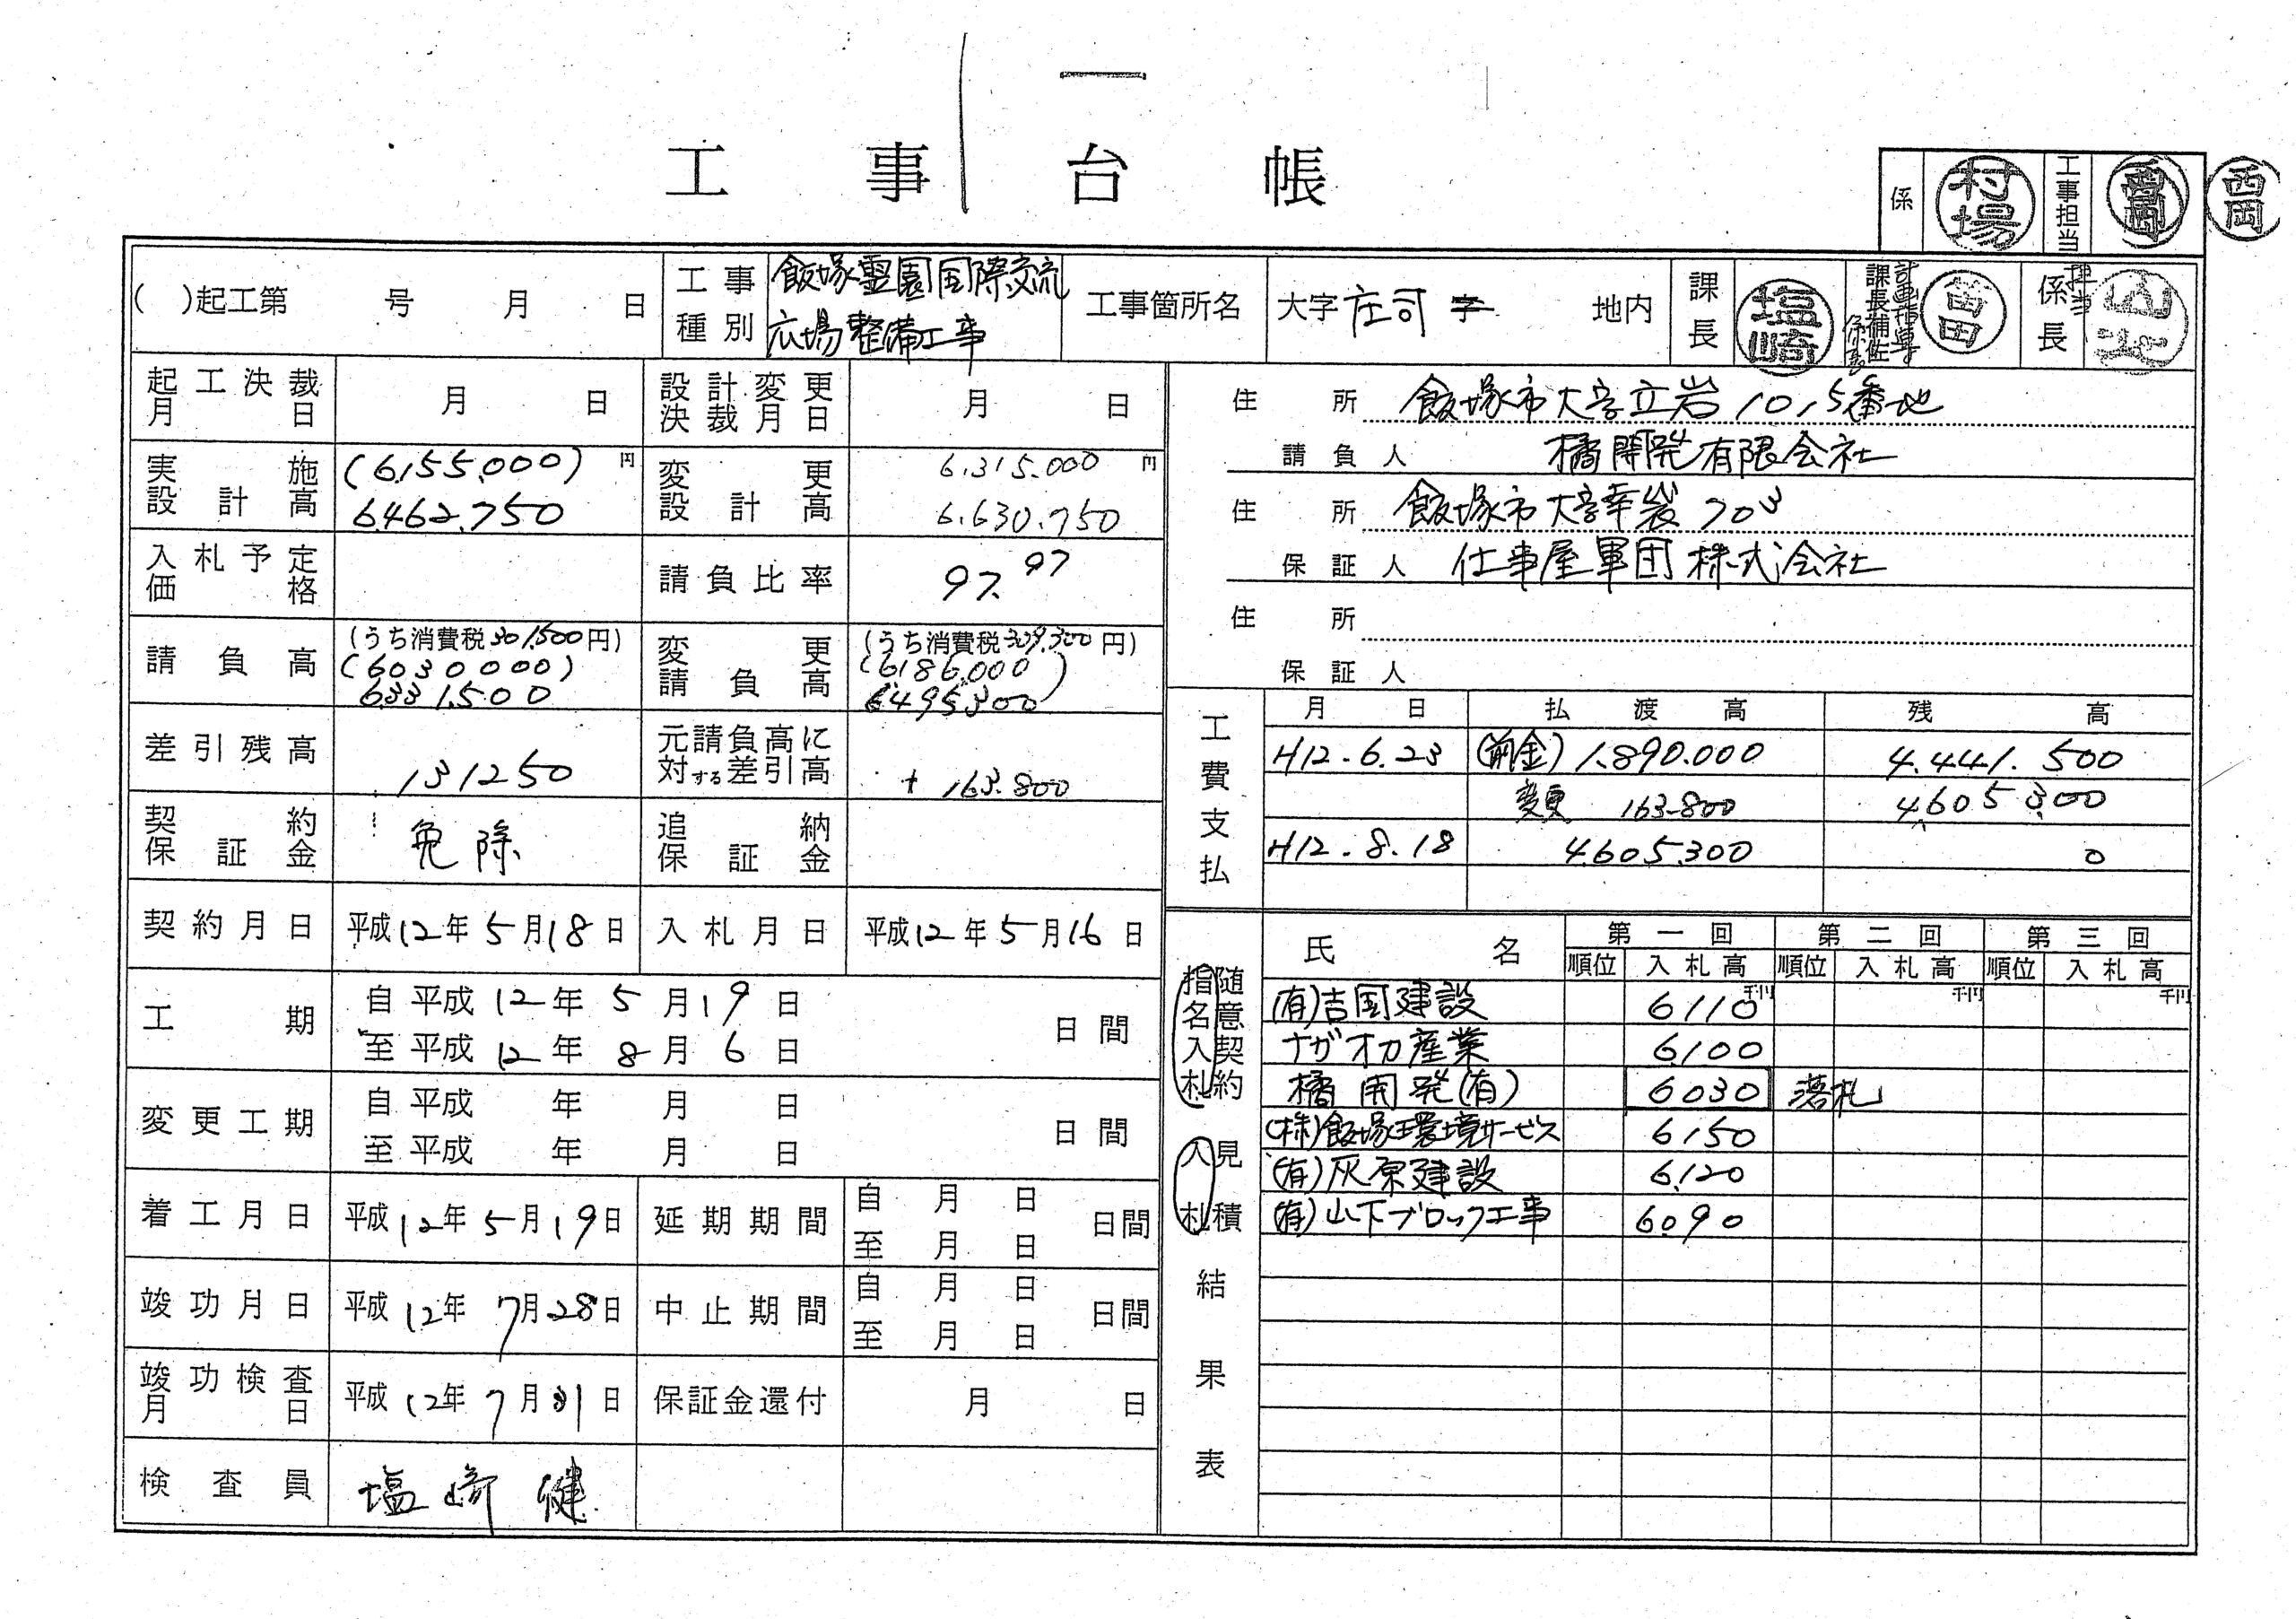 工事台帳
係 村場 工事担当 西岡
( )起工第 号 月 日 工事種別 飯塚霊園国際交流広場整備工事 工事箇所名 大字庄司字 地内 課長 塩崎 課長補佐 係長
起工決裁月日 月 日 設計変更決裁月日 月 日
実施設計高 (6,155,000)円 6,462,750 変更設計高 6,315,000円 6,630,750
入札予定価格 請負比率 97.97
請負高 (うち消費税301,500円) (6030000) 6,331,500 変更請負高 (うち消費税309,300円) (6186,000) 6,495,300
差引残高 131250 元請負高に対する差引高 + 163,800
契約保証金 免除 追納保証金
契約月日 平成12年5月18日 入札月日 平成12年5月16日
工期 自 平成12年5月19日 日間
至 平成12年8月6日
変更工期 自 平成 年 月 日 日間
至 平成 年 月 日
着工月日 平成12年5月19日 延期期間 自 月 日 至 月 日 日間
竣功月日 平成12年7月28日 中止期間 自 月 日 至 月 日 日間
竣功検査月日 平成12年7月31日 保証金還付 月 日
検査員 塩崎健
住所 飯塚市大字立岩1015番地
請負人 橘開発有限会社
住所 飯塚市大字幸袋703
保証人 仕事屋軍団株式会社
住所
保証人
工費支払 月日 払渡高 残高
H12.6.23 (前金)1,890,000 4,441,500
変更 163,800 4,605,300
H12.8.18 4,605,300 0
指名入札 随意契約 入札 見積 結果表
氏名 第一回 第二回 第三回
順位 入札高 順位 入札高 順位 入札高
(有)吉国建設 6110千円 千円 千円
ナガオカ産業 6,100
橘開発(有) 6030 落札
(株)飯塚環境サービス 6150
(有)灰原建設 6,120
(有)山下ブロック工事 6090